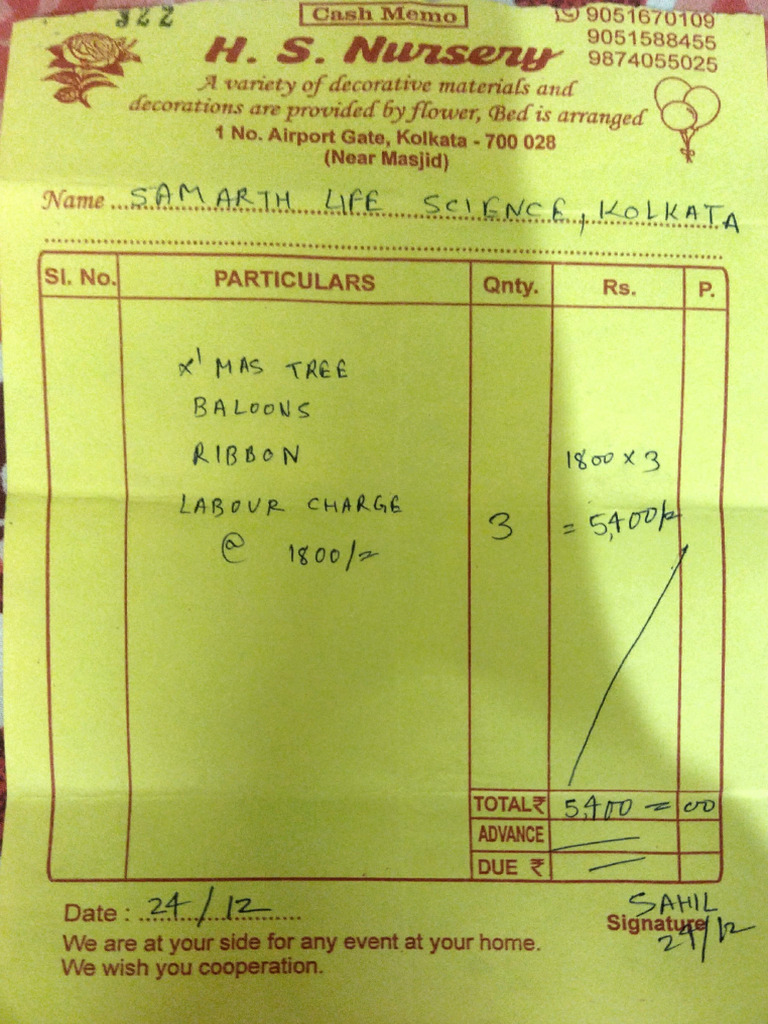 322
Cash Memo
9051670109
9051588455
9874055025
H. S. Nursery
A variety of decorative materials and
decorations are provided by flower, Bed is arranged
1 No. Airport Gate, Kolkata - 700 028
(Near Masjid)
Name SAMARTH LIFE SCIENCE, KOLKATA
Sl. No. PARTICULARS Qnty. Rs. P.
X'MAS TREE
BALOONS
RIBBON 1800 x 3
LABOUR CHARGE 3 = 5,400/=
@ 1800/=
TOTAL ₹ 5,400 = 00
ADVANCE —
DUE ₹ —
Date : 24/12 SAHIL
Signature
24/12
We are at your side for any event at your home.
We wish you cooperation.